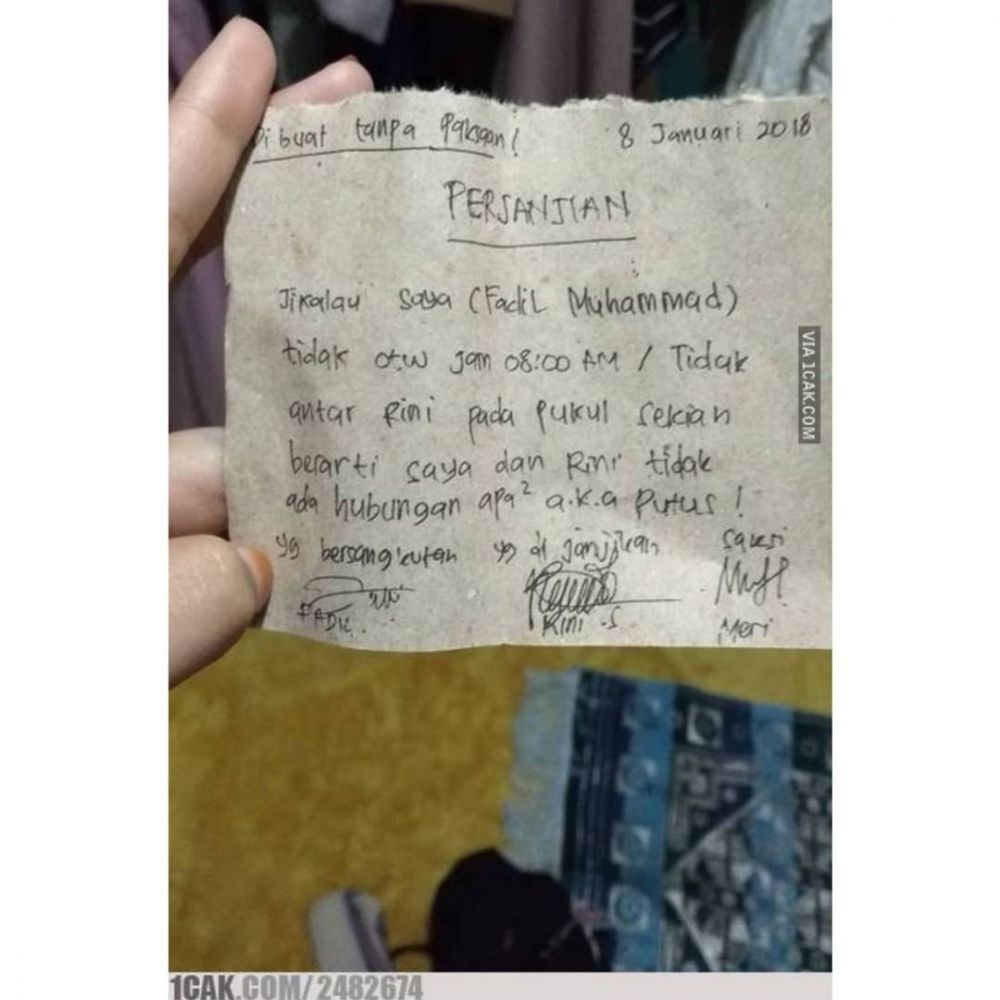 Di buat tanpa Paksaan! 8 Januari 2018
PERJANJIAN
Jikalau saya (Fadil Muhammad)
tidak otw jam 08:00 AM / Tidak
antar Rini pada pukul sekian
berarti saya dan Rini tidak
ada hubungan apa² a.k.a Putus!
yg bersangkutan yg di janjikan saksi
FADIL Rini .S Meri
VIA 1CAK.COM
1CAK.COM/2482674